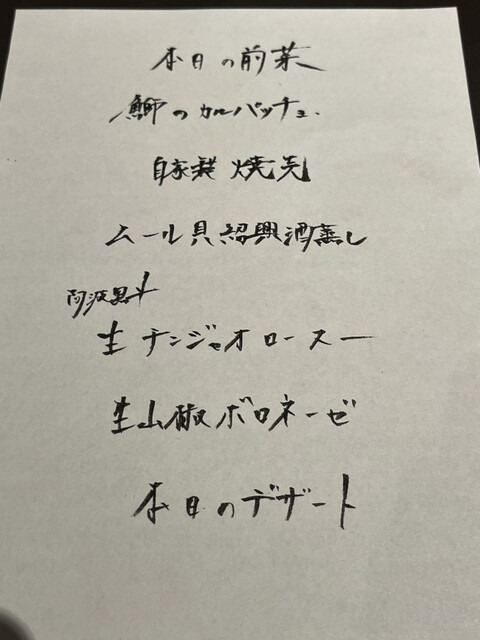 本日の前菜
鰤のカルパッチョ.
自家製焼売
ムール貝紹興酒蒸し
阿波黒牛
生チンジャオロースー
生山椒ボロネーゼ
本日のデザート